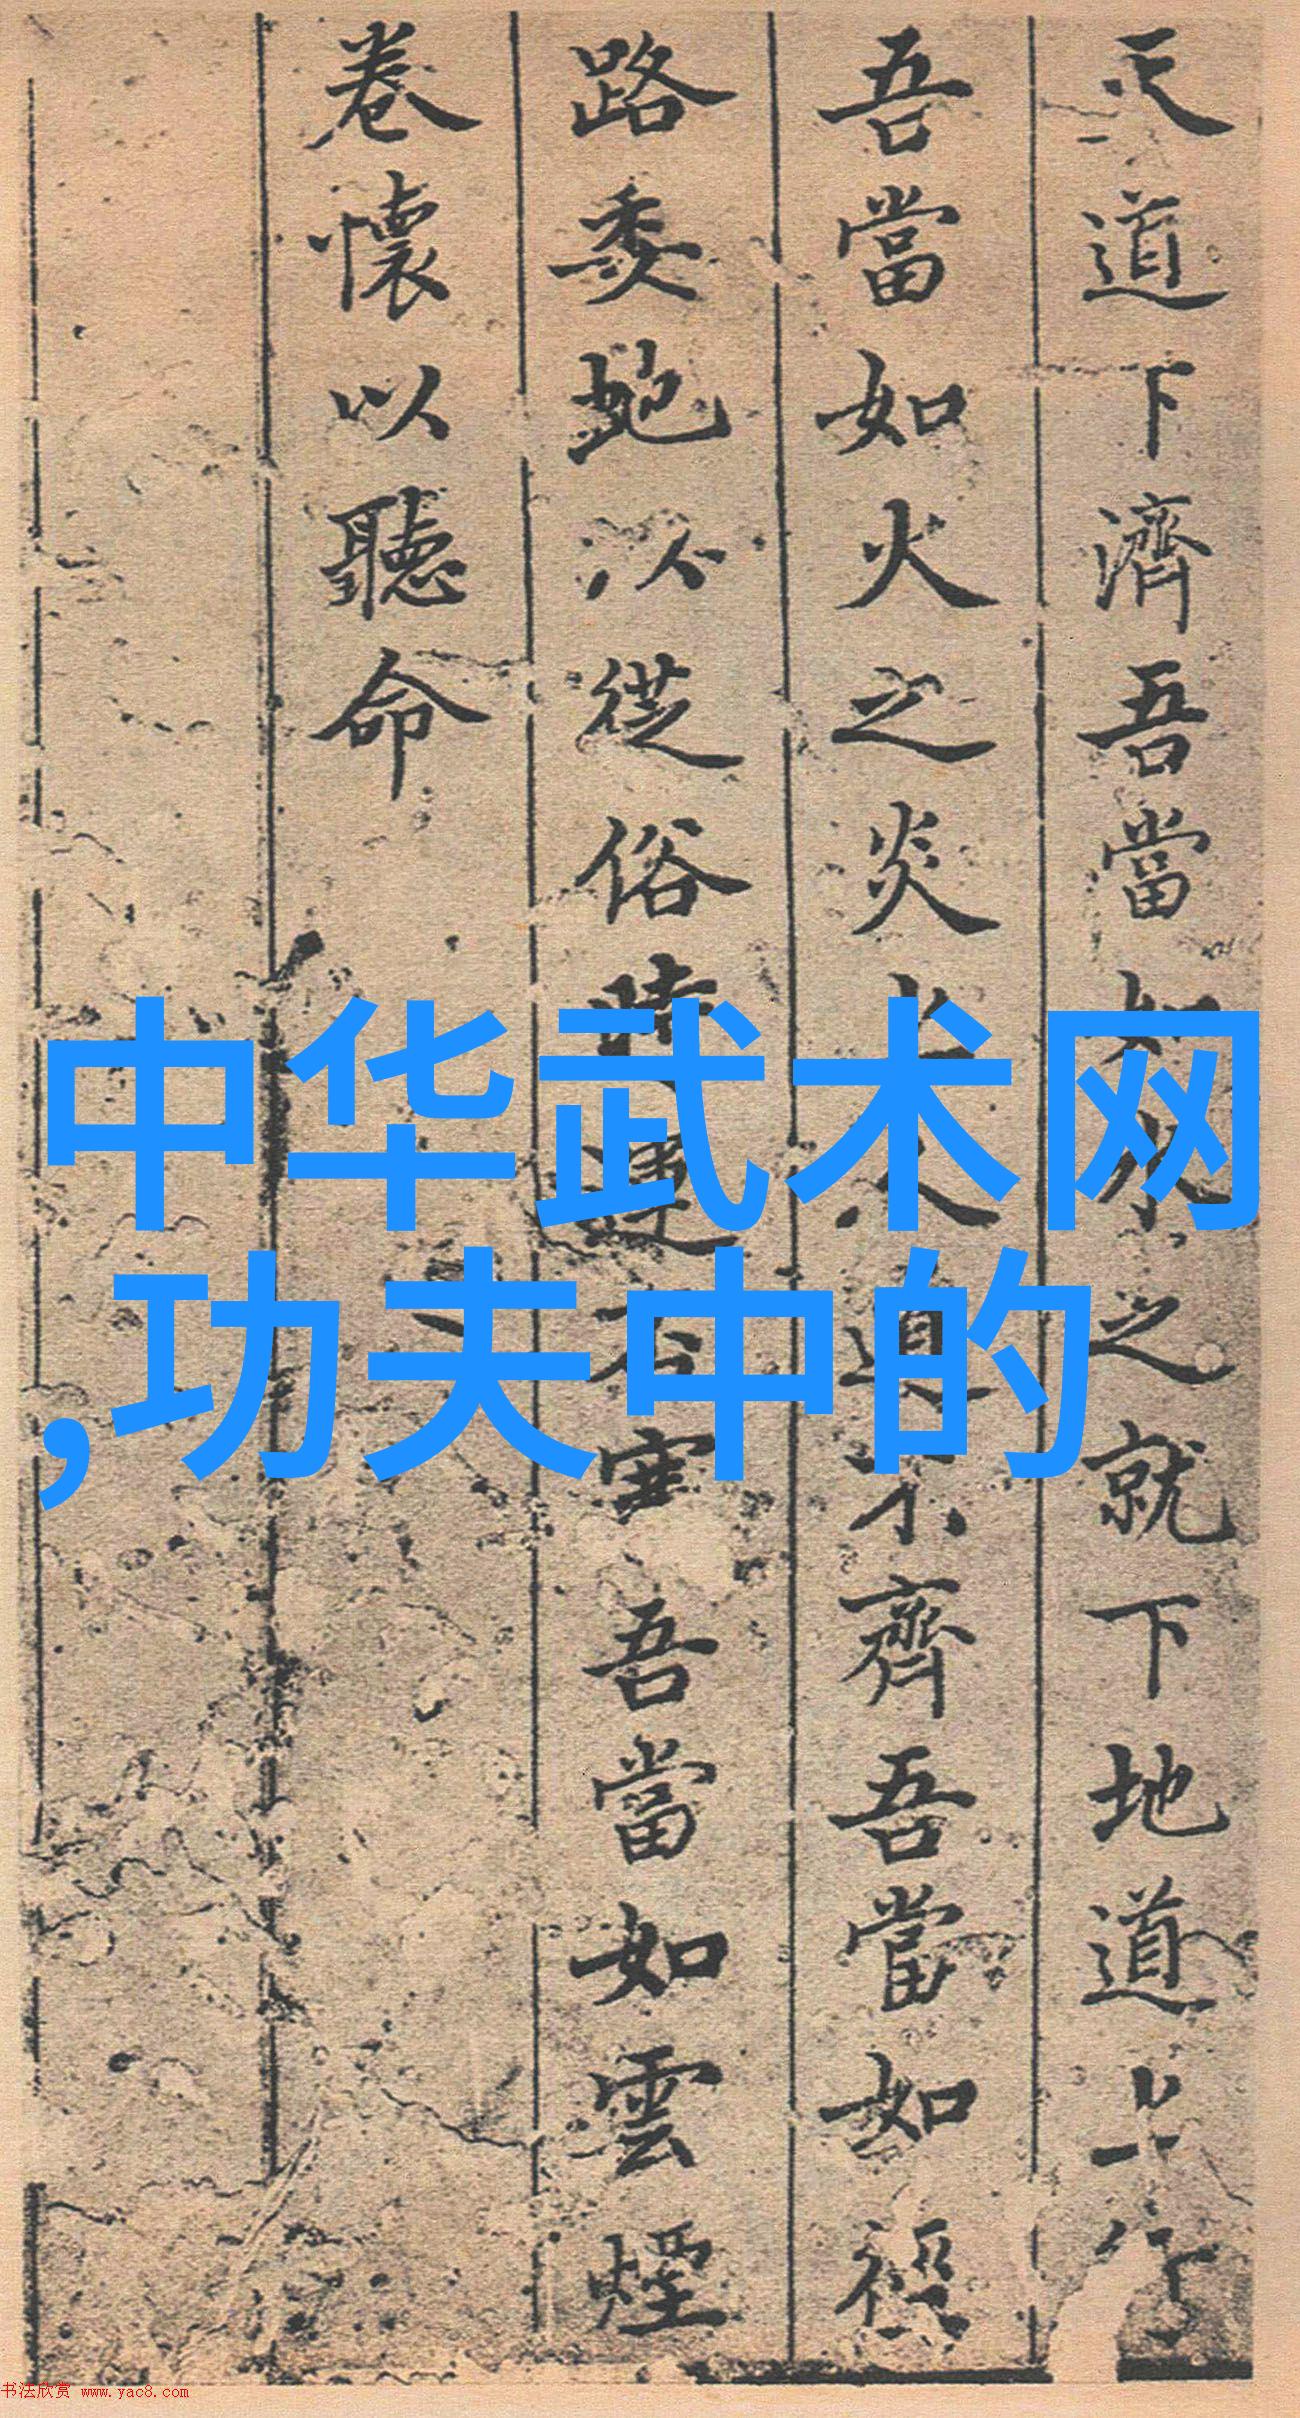 天道下濟吾當如水之就下地道上行
吾當如火之炎上人道不齊吾當如徑
路委蛇以從俗時運不塞吾當如雲煙
卷懷以聽命
中华武术网
,功夫中的
书法欣赏 www.yac8.com